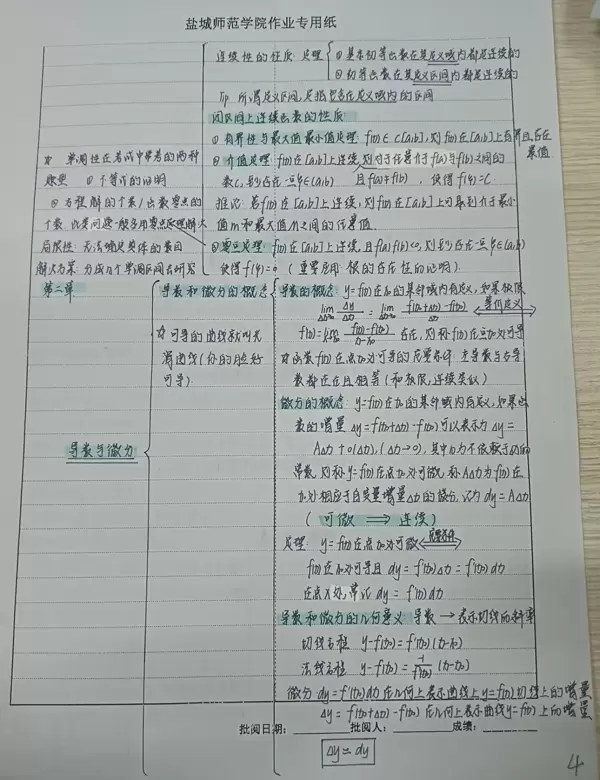 盐城师范学院作业专用纸
连续性的性质 定理 ① 基本初等函数在其定义域内都是连续的
② 初等函数在其定义区间内都是连续的
Tip 所谓定义区间,是指包含在定义域内的区间
闭区间上连续函数的性质
① 有界性与最大值最小值定理 f(x)∈C[a,b],则f(x)在[a,b]上有界且存在最值
② 介值定理 f(x)在[a,b]上连续,则对于任意介于f(a)与f(b)之间的
数C,至少存在一点ξ∈(a,b) 且f(a)≠f(b), 使得f(ξ)=C
推论 若f(x)在[a,b]上连续,则f(x)在[a,b]上可取到介于最小
值m和最大值M之间的任意值
③ 零点定理 f(x)在[a,b]上连续,且f(a)f(b)<0,则至少存在一点ξ∈(a,b)
使得f(ξ)=0 (重要应用 根的存在性的证明)
单调性在考试中常考的两种
题型 ① 不等式的证明
② 方程解的个数/函数零点的
个数 此类问题一般多用零点定理解决
局限性 无法确定具体的数目
解决方案 分成n个单调区间去研究
第二章
导数与微分
导数和微分的概念
可导的曲线就叫光
滑曲线(你的脸好
可导)
导数的概念 y=f(x)在x₀的某邻域内有定义,如果极限
lim Δx→0 Δy/Δx = lim Δx→0 (f(x₀+Δx)-f(x₀))/Δx 等价定义 ⟺
f'(x₀)=lim x→x₀ (f(x)-f(x₀))/(x-x₀) 存在,则称f(x)在点x₀处可导
函数f(x)在点x₀处可导的充要条件 左导数与右导
数都存在且相等(和极限,连续类似)
微分的概念 y=f(x)在x₀的某邻域内有定义,如果函
数的增量 Δy=f(x₀+Δx)-f(x₀)可以表示为 Δy=
AΔx+o(Δx),(Δx→0),其中A为不依赖于Δx的
常数,则称y=f(x)在点x₀处可微,称AΔx为f(x)在
x₀处相应于自变量增量Δx的微分,记为 dy=AΔx
(可微 ⟹ 连续)
定理 y=f(x)在点x₀处可微 充要条件 ⟺
f(x)在x₀处可导且 dy=f'(x₀)Δx=f'(x₀)dx
在点x处,常记 dy=f'(x)dx
导数和微分的几何意义 导数 → 表示切线的斜率
切线方程 y-f(x₀)=f'(x₀)(x-x₀)
法线方程 y-f(x₀)=-1/f'(x₀)(x-x₀)
微分 dy=f'(x₀)dx在几何上表示曲线上y=f(x)切线上的增量
Δy=f(x₀+Δx)-f(x₀)在几何上表示曲线y=f(x)上的增量
批阅日期: 批阅人: 成绩:
Δy≈dy
4